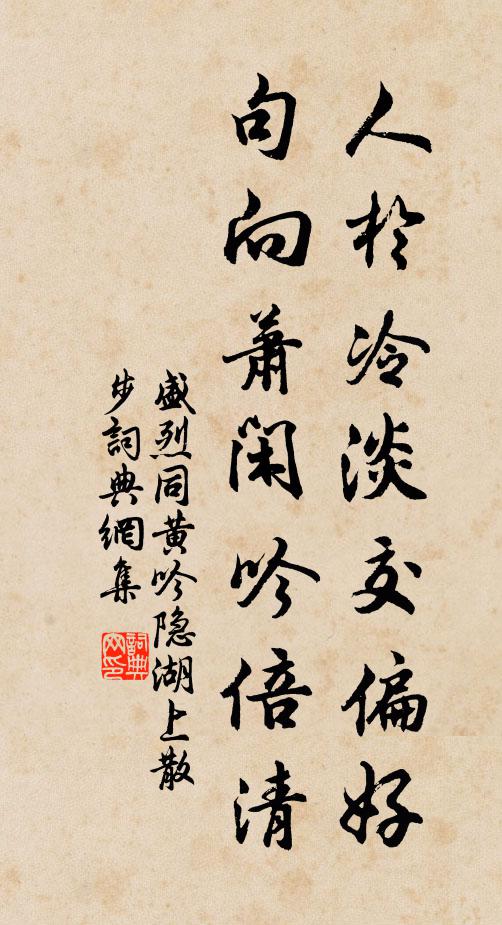 人於冷淡交偏好
句向蕭閑吟倍清
盛烈同黄吟隐湖上散
步詞典網集
詞典
网印